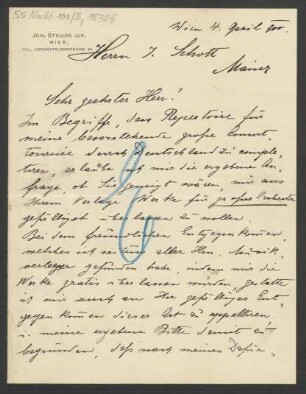 55 Nachl 100/B, 15306
JOH. STRAUSS JUN.
WIEN,
VIII., LERCHENFELDERSTRASSE
Wien 4. April 900.
Herrn J. Schott
Mainz
Sehr geehrter Herr!
Im Begriffe, das Repertoire für
meine bevorstehende große Concert-
tournée durch Deutschland zu comple-
tiren, erlaube ich mir die ergebene An-
frage, ob Sie geneigt wären, mir aus
Ihrem Verlage Werke für großes Orchester
gefälligst überlassen zu wollen.
Bei dem freundlichen Entgegenkommen,
welches ich seitens aller Hrn. Musik-
verleger gefunden habe, indem mir die
Werke gratis überlassen wurden, gestatte
ich mir auch an Ihr gefälliges Ent-
gegenkommen dieser Art zu appelliren
u. meine ergebene Bitte damit zu
begründen, daß nach meinem Dafür-